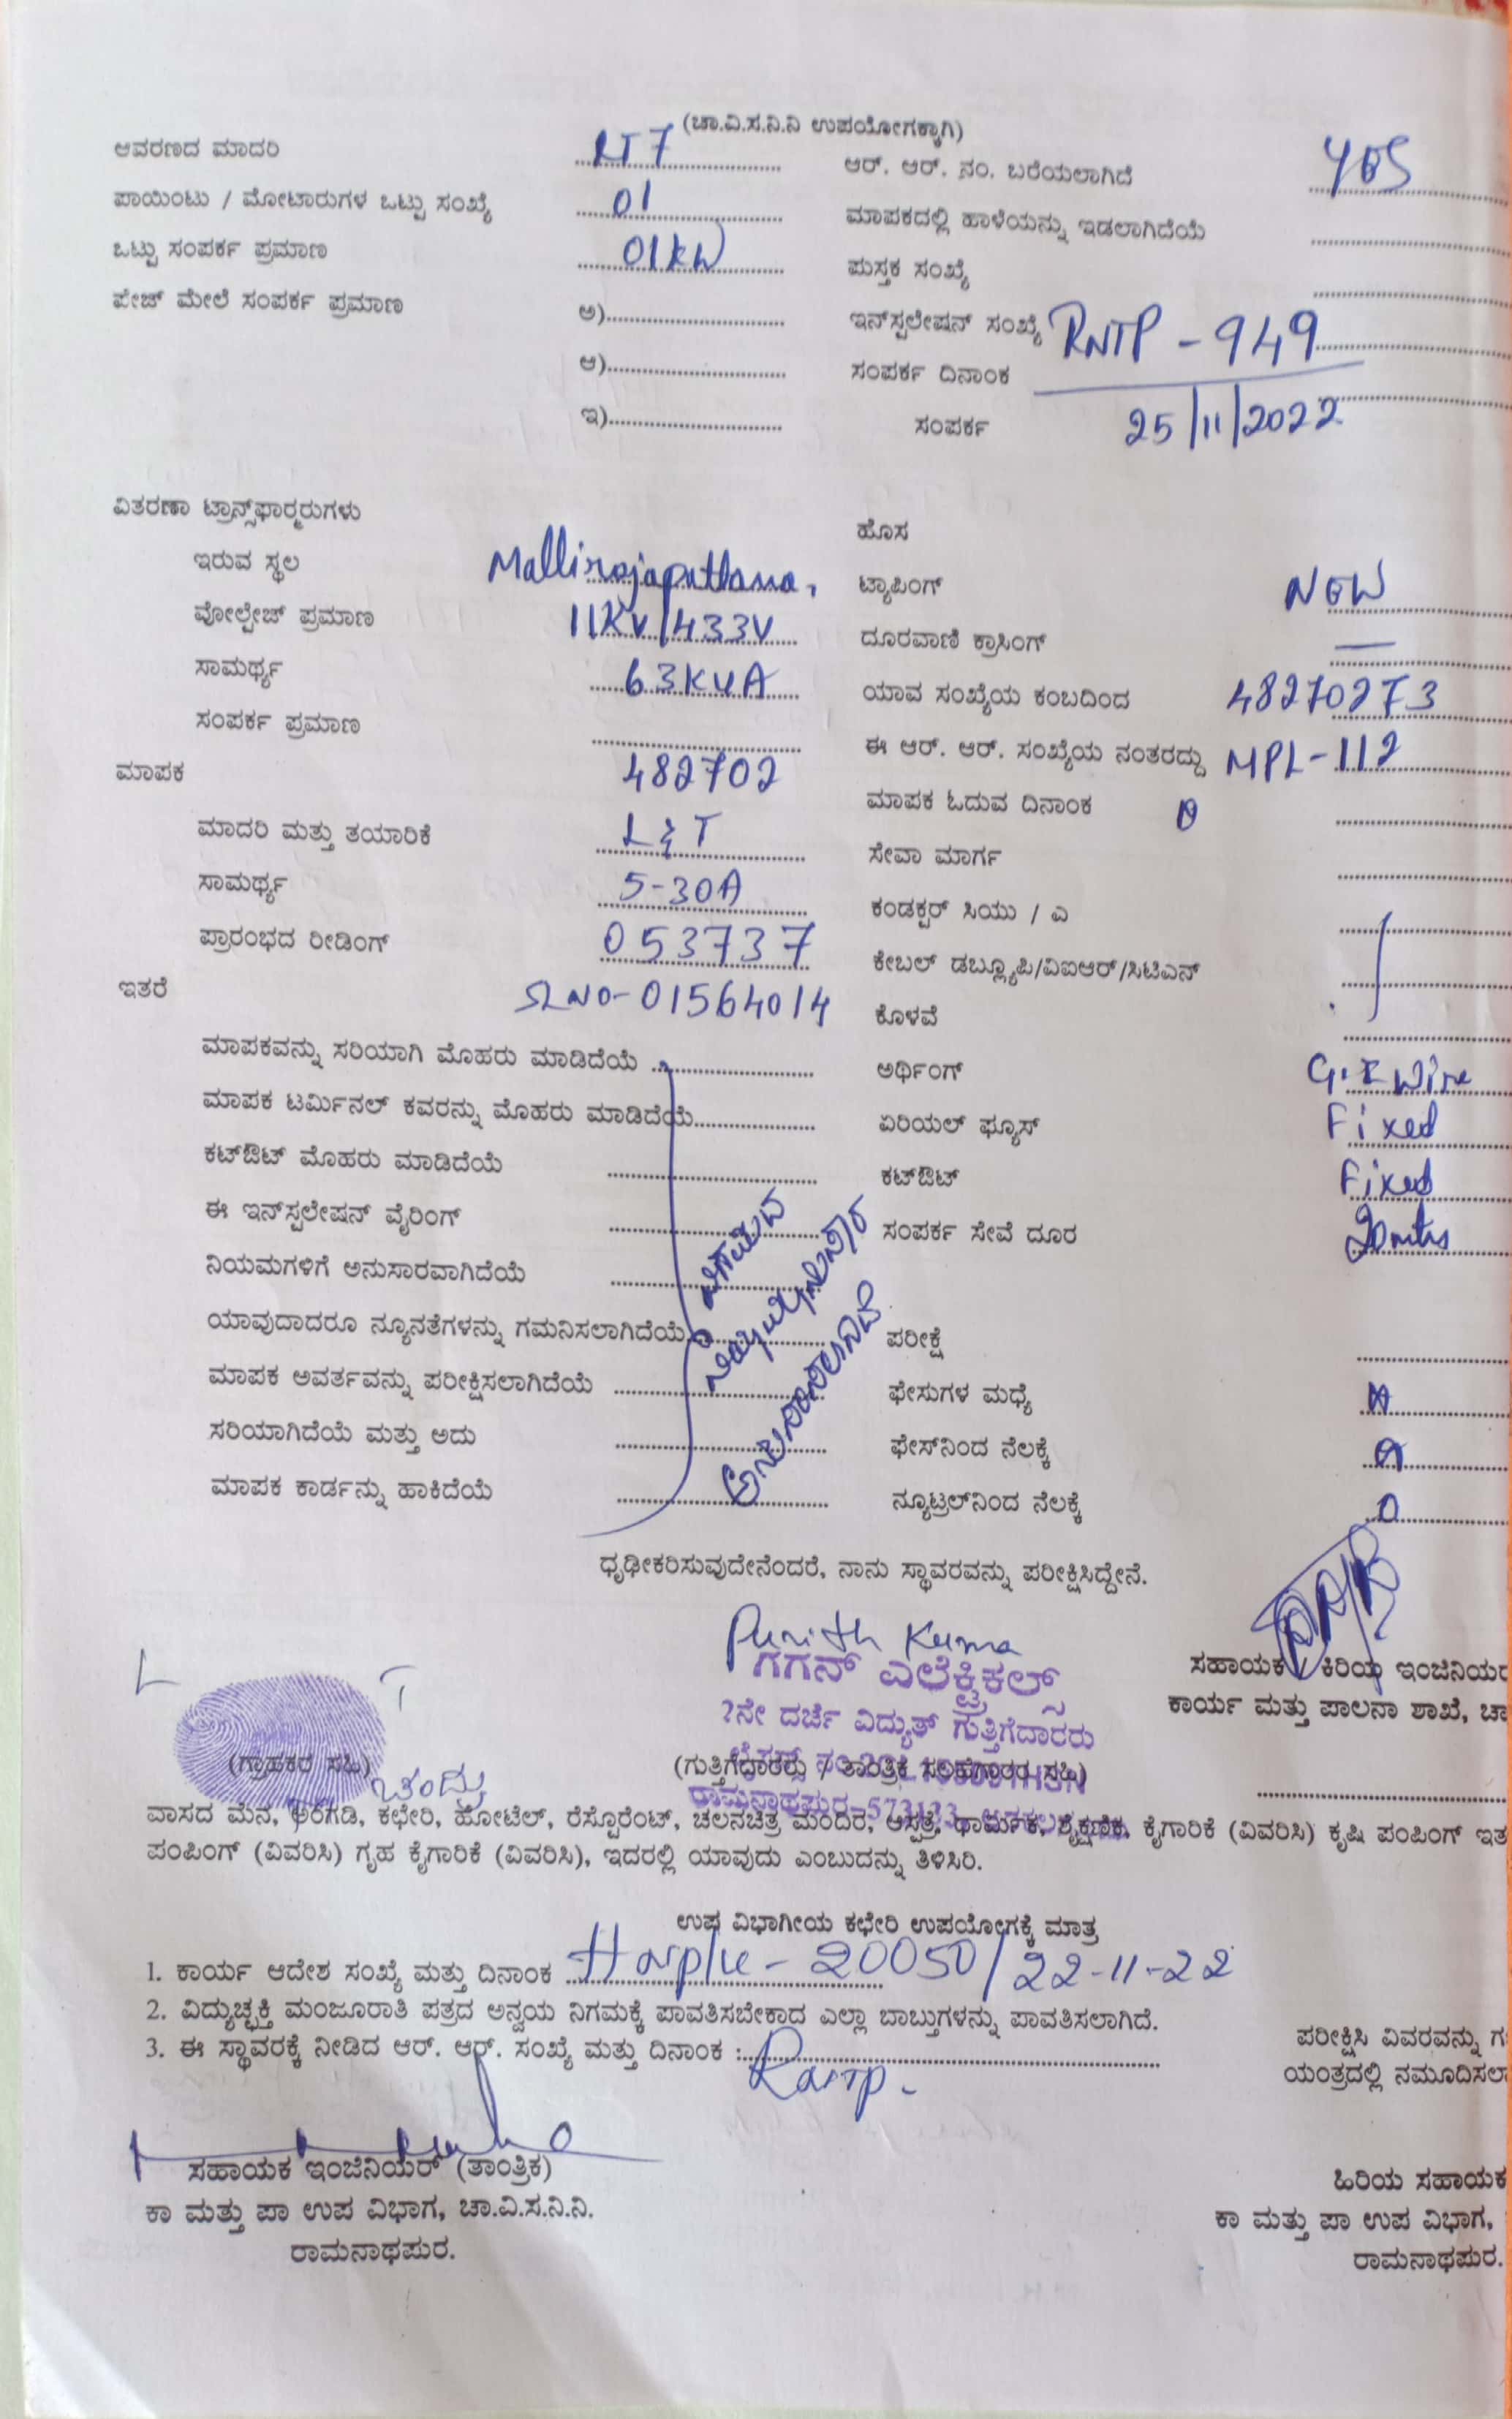 (ಚಾ.ವಿ.ಸ.ನಿ.ನಿ ಉಪಯೋಗಕ್ಕಾಗಿ)
ಆವರಣದ ಮಾದರಿ ........ LT7 ........
ಪಾಯಿಂಟು / ಮೋಟಾರುಗಳ ಒಟ್ಟು ಸಂಖ್ಯೆ ........ 01 ........
ಒಟ್ಟು ಸಂಪರ್ಕ ಪ್ರಮಾಣ ........ 01KW ........
ಪೇಜ್ ಮೇಲೆ ಸಂಪರ್ಕ ಪ್ರಮಾಣ ಅ)........
ಆ)........
ಇ)........
ಆರ್. ಆರ್. ನಂ. ಬರೆಯಲಾಗಿದೆ YES
ಮಾಪಕದಲ್ಲಿ ಹಾಳೆಯನ್ನು ಇಡಲಾಗಿದೆಯೆ ........
ಪುಸ್ತಕ ಸಂಖ್ಯೆ ........
ಇನ್‌ಸ್ಪಲೇಷನ್ ಸಂಖ್ಯೆ RNTP - 949
ಸಂಪರ್ಕ ದಿನಾಂಕ
ಸಂಪರ್ಕ 25/11/2022
ವಿತರಣಾ ಟ್ರಾನ್ಸ್‌ಫಾರ್ಮರುಗಳು
ಇರುವ ಸ್ಥಲ
ವೋಲ್ಟೇಜ್ ಪ್ರಮಾಣ 11KV/433V
ಸಾಮರ್ಥ್ಯ 63KVA
ಸಂಪರ್ಕ ಪ್ರಮಾಣ ........
ಮಾಪಕ 482702
ಮಾದರಿ ಮತ್ತು ತಯಾರಿಕೆ L&T
ಸಾಮರ್ಥ್ಯ 5-30A
ಪ್ರಾರಂಭದ ರೀಡಿಂಗ್ 053737
ಇತರೆ SLNO-01564014
ಮಾಪಕವನ್ನು ಸರಿಯಾಗಿ ಮೊಹರು ಮಾಡಿದೆಯೆ ........
ಮಾಪಕ ಟರ್ಮಿನಲ್ ಕವರನ್ನು ಮೊಹರು ಮಾಡಿದೆಯೆ........
ಕಟ್‌ಔಟ್ ಮೊಹರು ಮಾಡಿದೆಯೆ ........
ಈ ಇನ್‌ಸ್ಪಲೇಷನ್ ವೈರಿಂಗ್ ........
ನಿಯಮಗಳಿಗೆ ಅನುಸಾರವಾಗಿದೆಯೆ ........
ಯಾವುದಾದರೂ ನ್ಯೂನತೆಗಳನ್ನು ಗಮನಿಸಲಾಗಿದೆಯೆ ........
ಮಾಪಕ ಅವರ್ತವನ್ನು ಪರೀಕ್ಷಿಸಲಾಗಿದೆಯೆ ........
ಸರಿಯಾಗಿದೆಯೆ ಮತ್ತು ಅದು ........
ಮಾಪಕ ಕಾರ್ಡನ್ನು ಹಾಕಿದೆಯೆ ........
ಹೊಸ
ಟ್ಯಾಪಿಂಗ್ NEW
ದೂರವಾಣಿ ಕ್ರಾಸಿಂಗ್ —
ಯಾವ ಸಂಖ್ಯೆಯ ಕಂಬದಿಂದ
ಈ ಆರ್. ಆರ್. ಸಂಖ್ಯೆಯ ನಂತರದ್ದು MPL-112
ಮಾಪಕ ಓದುವ ದಿನಾಂಕ
ಸೇವಾ ಮಾರ್ಗ ........
ಕಂಡಕ್ಟರ್ ಸಿಯು / ಎ ........
ಕೇಬಲ್ ಡಬ್ಲ್ಯೂಪಿ/ವಿಐಆರ್/ಸಿಟಿಎನ್ ........
ಕೊಳವೆ ........
ಅರ್ಥಿಂಗ್ G.I Wire
ಏರಿಯಲ್ ಫ್ಯೂಸ್ Fixed
ಕಟ್‌ಔಟ್ Fixed
ಸಂಪರ್ಕ ಸೇವೆ ದೂರ 20mtrs
ಪರೀಕ್ಷೆ ........
ಫೇಸುಗಳ ಮಧ್ಯೆ
ಫೇಸ್‌ನಿಂದ ನೆಲಕ್ಕೆ
ನ್ಯೂಟ್ರಲ್‌ನಿಂದ ನೆಲಕ್ಕೆ 0
ಧೃಢೀಕರಿಸುವುದೇನೆಂದರೆ, ನಾನು ಸ್ಥಾವರವನ್ನು ಪರೀಕ್ಷಿಸಿದ್ದೇನೆ.
Punith Kuma
ಗಗನ್ ಎಲೆಕ್ಟ್ರಿಕಲ್ಸ್
ಸಹಾಯಕ / ಕಿರಿಯ ಇಂಜಿನಿಯರ
ಕಾರ್ಯ ಮತ್ತು ಪಾಲನಾ ಶಾಖೆ, ಚಾ
2ನೇ ದರ್ಜೆ ವಿದ್ಯುತ್ ಗುತ್ತಿಗೆದಾರರು
L T
(ಗ್ರಾಹಕರ ಸಹಿ) ಚಂದ್ರು
(ಗುತ್ತಿಗೆದಾರರು / ತಾಂತ್ರಿಕ ಸಲಹೆಗಾರರ ಸಹಿ)
ರಾಮನಾಥಪುರ-573133
ವಾಸದ ಮನೆ, ಅಂಗಡಿ, ಕಛೇರಿ, ಹೋಟೆಲ್, ರೆಸ್ಟೊರೆಂಟ್, ಚಲನಚಿತ್ರ ಮಂದಿರ, ಆಸ್ಪತ್ರೆ, ಧಾರ್ಮಿಕ, ಶೈಕ್ಷಣಿಕ, ಕೈಗಾರಿಕೆ (ವಿವರಿಸಿ) ಕೃಷಿ ಪಂಪಿಂಗ್ ಇತ
ಪಂಪಿಂಗ್ (ವಿವರಿಸಿ) ಗೃಹ ಕೈಗಾರಿಕೆ (ವಿವರಿಸಿ), ಇದರಲ್ಲಿ ಯಾವುದು ಎಂಬುದನ್ನು ತಿಳಿಸಿರಿ.
ಉಪ ವಿಭಾಗೀಯ ಕಛೇರಿ ಉಪಯೋಗಕ್ಕೆ ಮಾತ್ರ
1. ಕಾರ್ಯ ಆದೇಶ ಸಂಖ್ಯೆ ಮತ್ತು ದಿನಾಂಕ 20050/22-11-22
2. ವಿದ್ಯುಚ್ಛಕ್ತಿ ಮಂಜೂರಾತಿ ಪತ್ರದ ಅನ್ವಯ ನಿಗಮಕ್ಕೆ ಪಾವತಿಸಬೇಕಾದ ಎಲ್ಲಾ ಬಾಬ್ತುಗಳನ್ನು ಪಾವತಿಸಲಾಗಿದೆ.
3. ಈ ಸ್ಥಾವರಕ್ಕೆ ನೀಡಿದ ಆರ್. ಆರ್. ಸಂಖ್ಯೆ ಮತ್ತು ದಿನಾಂಕ :........
ಪರೀಕ್ಷಿಸಿ ವಿವರವನ್ನು ಗ
ಯಂತ್ರದಲ್ಲಿ ನಮೂದಿಸಲಾ
ಸಹಾಯಕ ಇಂಜಿನಿಯರ್ (ತಾಂತ್ರಿಕ)
ಕಾ ಮತ್ತು ಪಾ ಉಪ ವಿಭಾಗ, ಚಾ.ವಿ.ಸ.ನಿ.ನಿ.
ರಾಮನಾಥಪುರ.
ಹಿರಿಯ ಸಹಾಯಕ
ಕಾ ಮತ್ತು ಪಾ ಉಪ ವಿಭಾಗ,
ರಾಮನಾಥಪುರ.